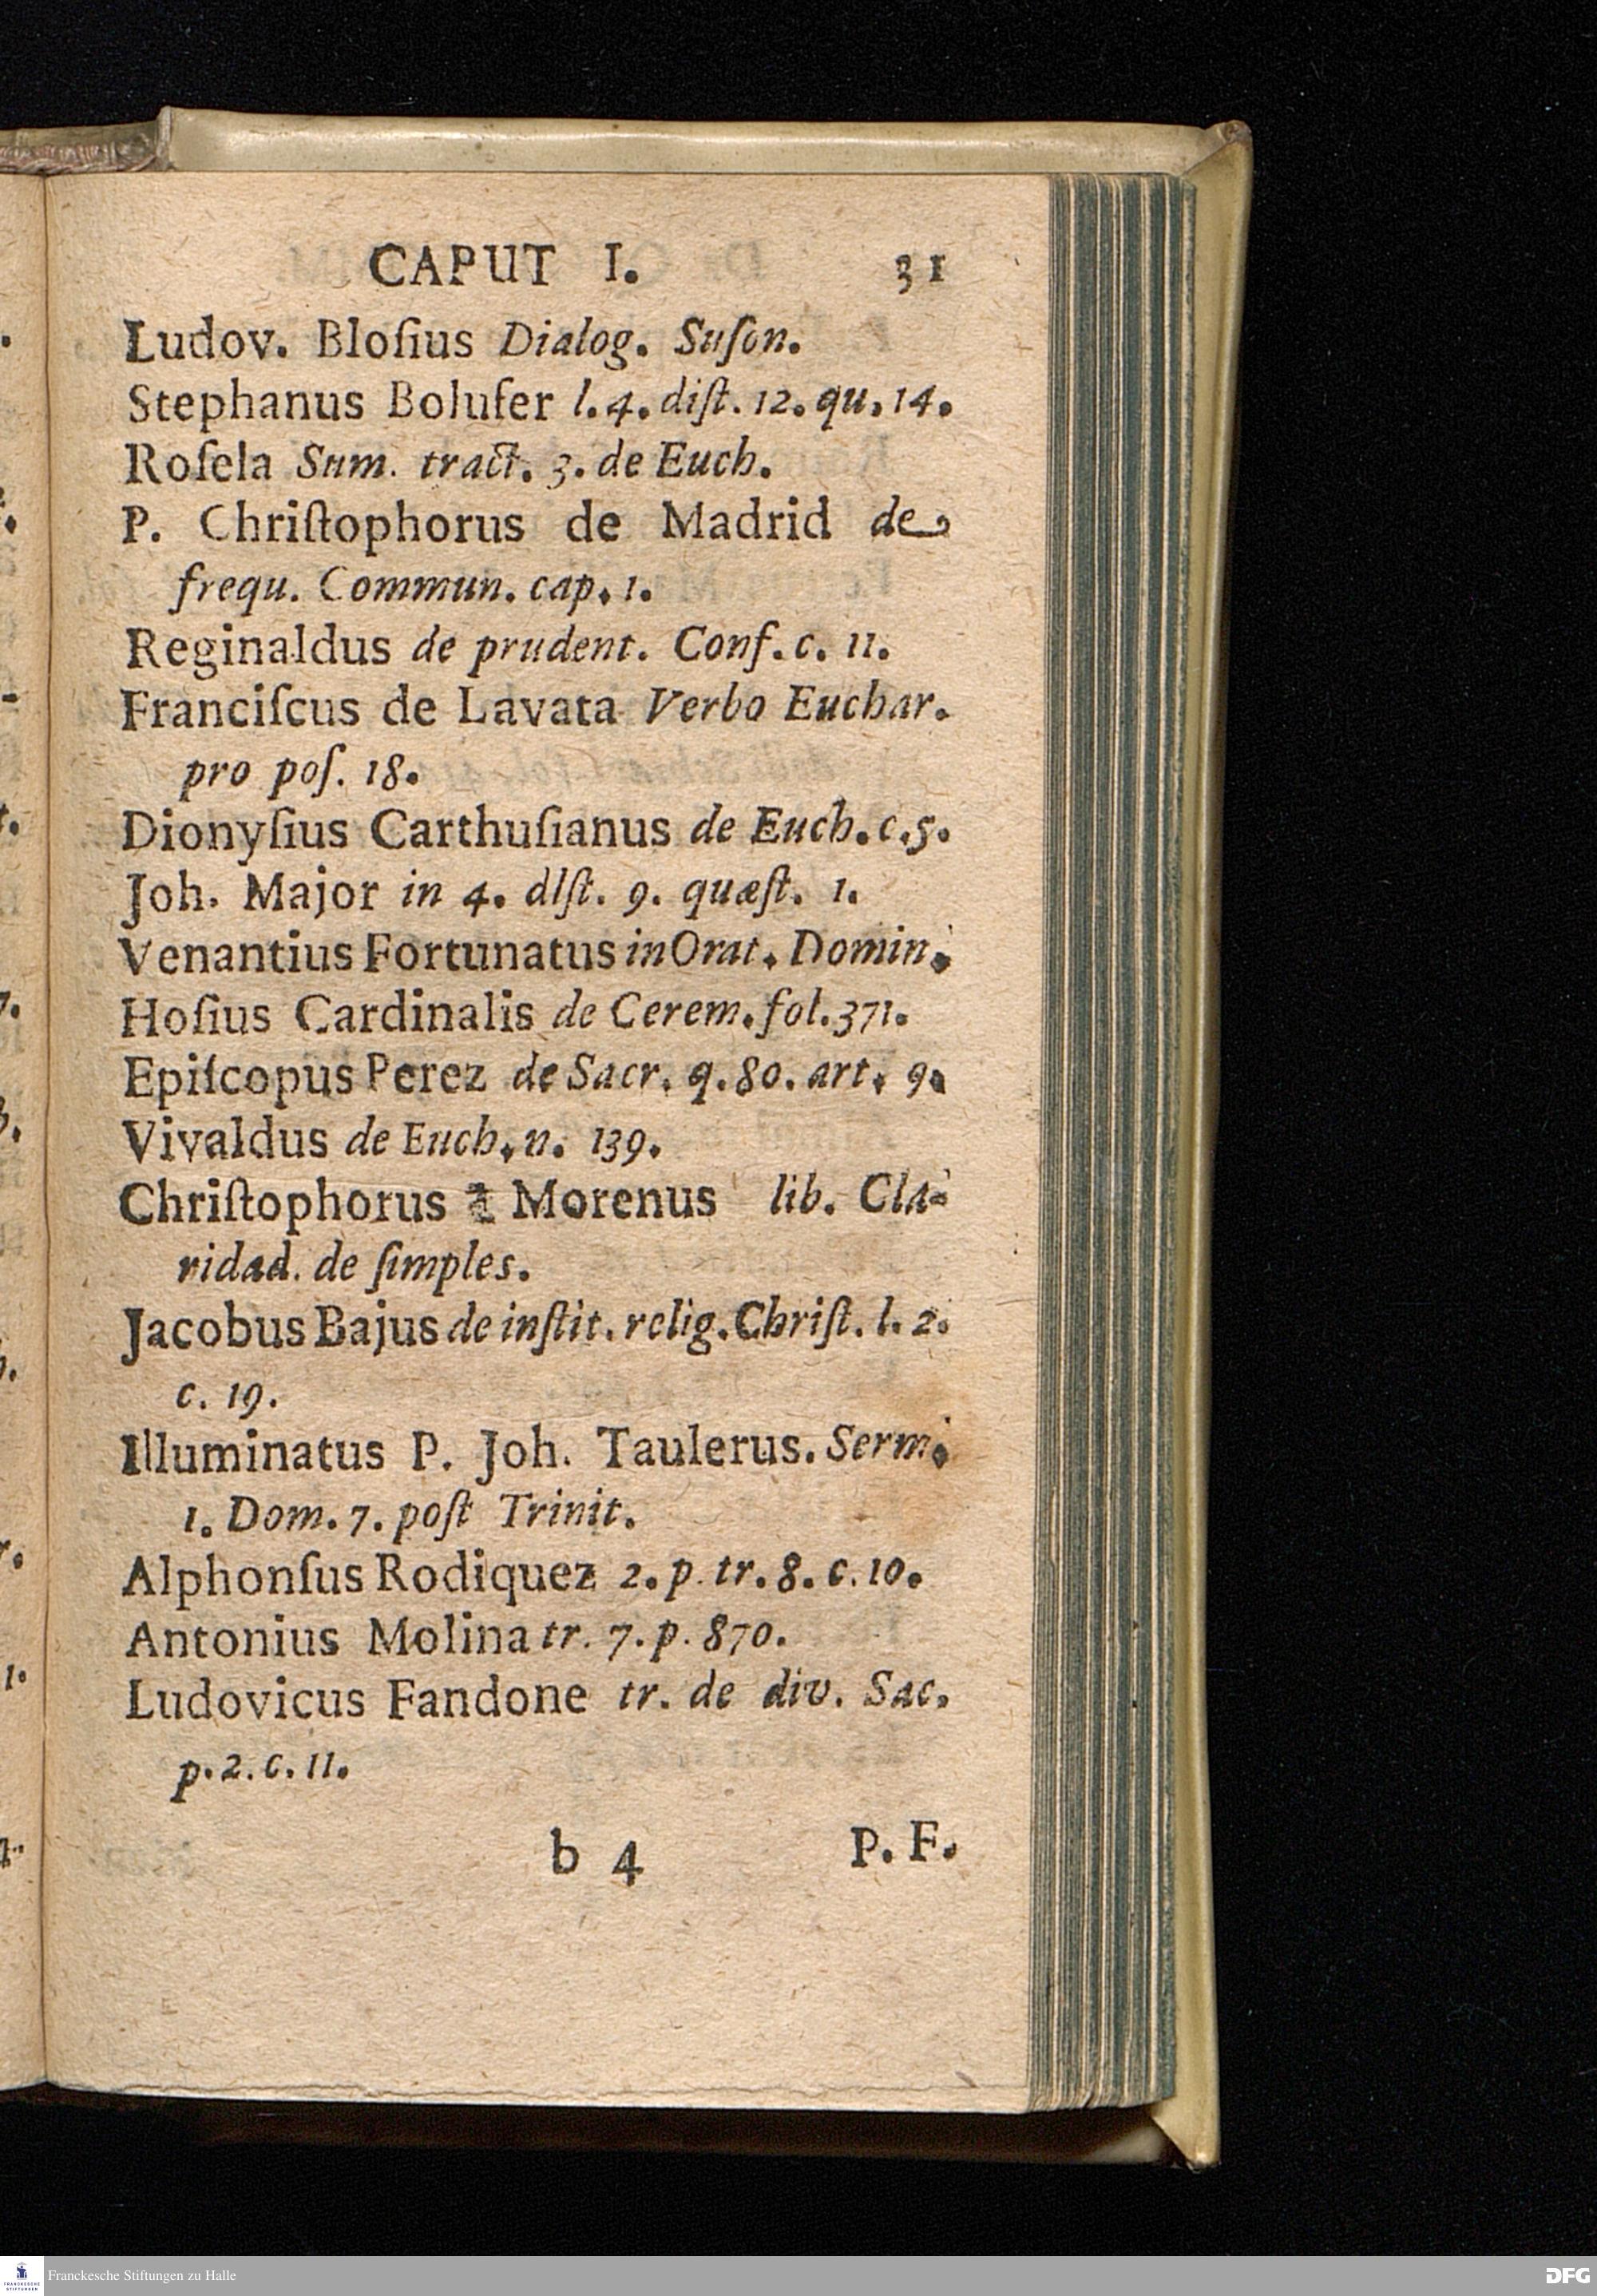 CAPUT I. 31
Ludov. Bloſius Dialog. Suſon.
Stephanus Bolufer l. 4. diſt. 12. qu. 14.
Roſela Sum. tract. 3. de Euch.
P. Chriſtophorus de Madrid de
frequ. Commun. cap. 1.
Reginaldus de prudent. Conf. c. 11.
Franciſcus de Lavata Verbo Euchar.
pro poſ. 18.
Dionyſius Carthuſianus de Euch. c. 5.
Joh. Major in 4. dlſt. 9. quæſt. 1.
Venantius Fortunatus in Orat. Domin.
Hoſius Cardinalis de Cerem. fol. 371.
Epiſcopus Perez de Sacr. q. 80. art. 9.
Vivaldus de Euch. n. 139.
Chriſtophorus à Morenus lib. Cla-
ridad. de ſimples.
Jacobus Bajus de inſtit. relig. Chriſt. l. 2.
c. 19.
Illuminatus P. Joh. Taulerus. Serm.
1. Dom. 7. poſt Trinit.
Alphonſus Rodiquez 2. p. tr. 8. c. 10.
Antonius Molina tr. 7. p. 870.
Ludovicus Fandone tr. de div. Sac.
p. 2. c. 11.
b 4 P. F.
FRANCKESCHE STIFTUNGEN
Franckesche Stiftungen zu Halle
DFG